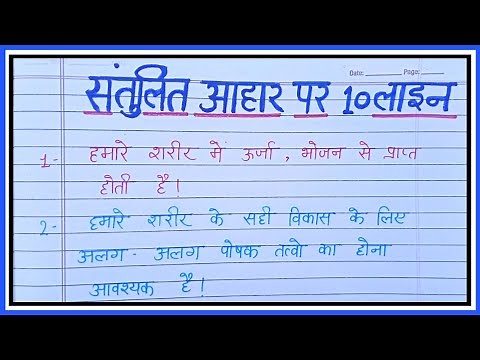 Date: ________ Page: ________
संतुलित आहार पर 10 लाइन
1- हमारे शरीर में ऊर्जा, भोजन से प्राप्त
होती है।
2- हमारे शरीर के सही विकास के लिए
अलग-अलग पोषक तत्वो का होना
आवश्यक है।